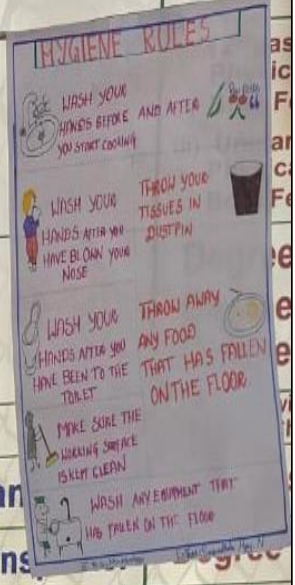 HYGIENE RULES
WASH YOUR
HANDS BEFORE AND AFTER
YOU START COOKING
WASH YOUR
HANDS AFTER YOU
HAVE BLOWN YOUR
NOSE
THROW YOUR
TISSUES IN
DUSTPIN
WASH YOUR
HANDS AFTER YOU
HAVE BEEN TO THE
TOILET
THROW AWAY
ANY FOOD
THAT HAS FALLEN
ON THE FLOOR.
MAKE SURE THE
WORKING SURFACE
IS KEPT CLEAN
WASH ANY EQUIPMENT THAT
HAS FALLEN ON THE FLOOR